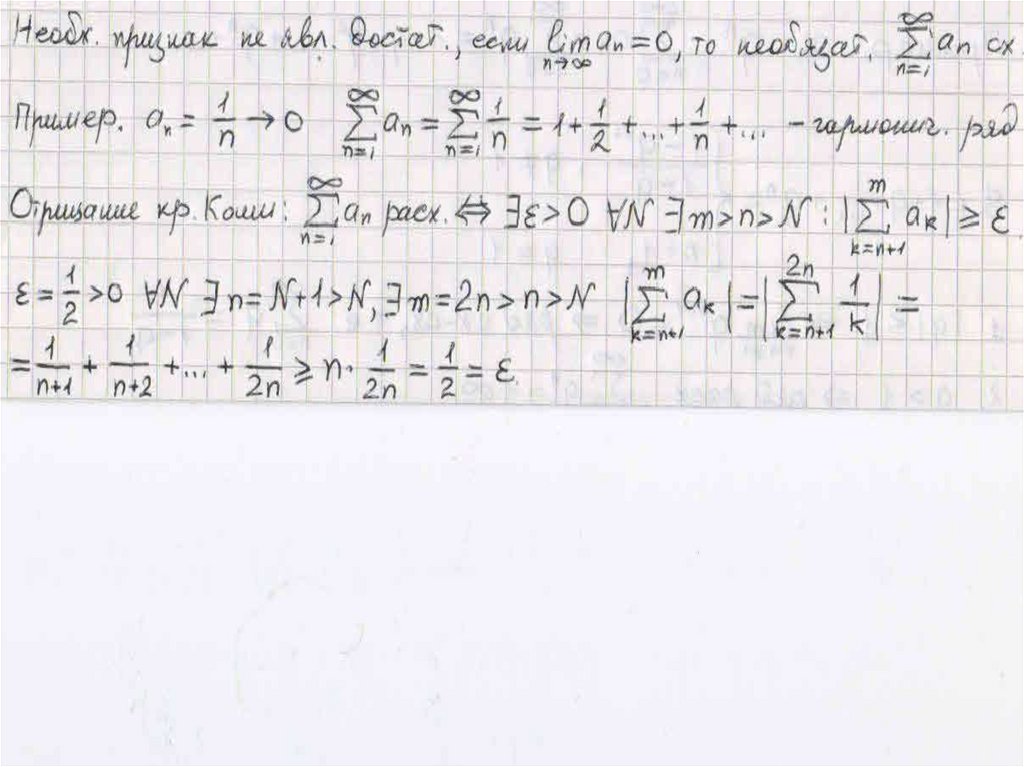 Необх. признак не явл. достат., если lim_{n→∞} aₙ = 0, то необязат. ∑_{n=1}^{∞} aₙ сх
Пример. aₙ = 1/n → 0 ∑_{n=1}^{∞} aₙ = ∑_{n=1}^{∞} 1/n = 1 + 1/2 + ... + 1/n + ... – гармонич. ряд
Отрицание кр. Коши: ∑_{n=1}^{∞} aₙ расх. ⇔ ∃ε > 0 ∀N ∃m > n > N : |∑_{k=n+1}^{m} aₖ| ≥ ε.
ε = 1/2 > 0 ∀N ∃n = N+1 > N, ∃m = 2n > n > N |∑_{k=n+1}^{m} aₖ| = |∑_{k=n+1}^{2n} 1/k| =
= 1/(n+1) + 1/(n+2) + ... + 1/(2n) ≥ n · 1/(2n) = 1/2 = ε.